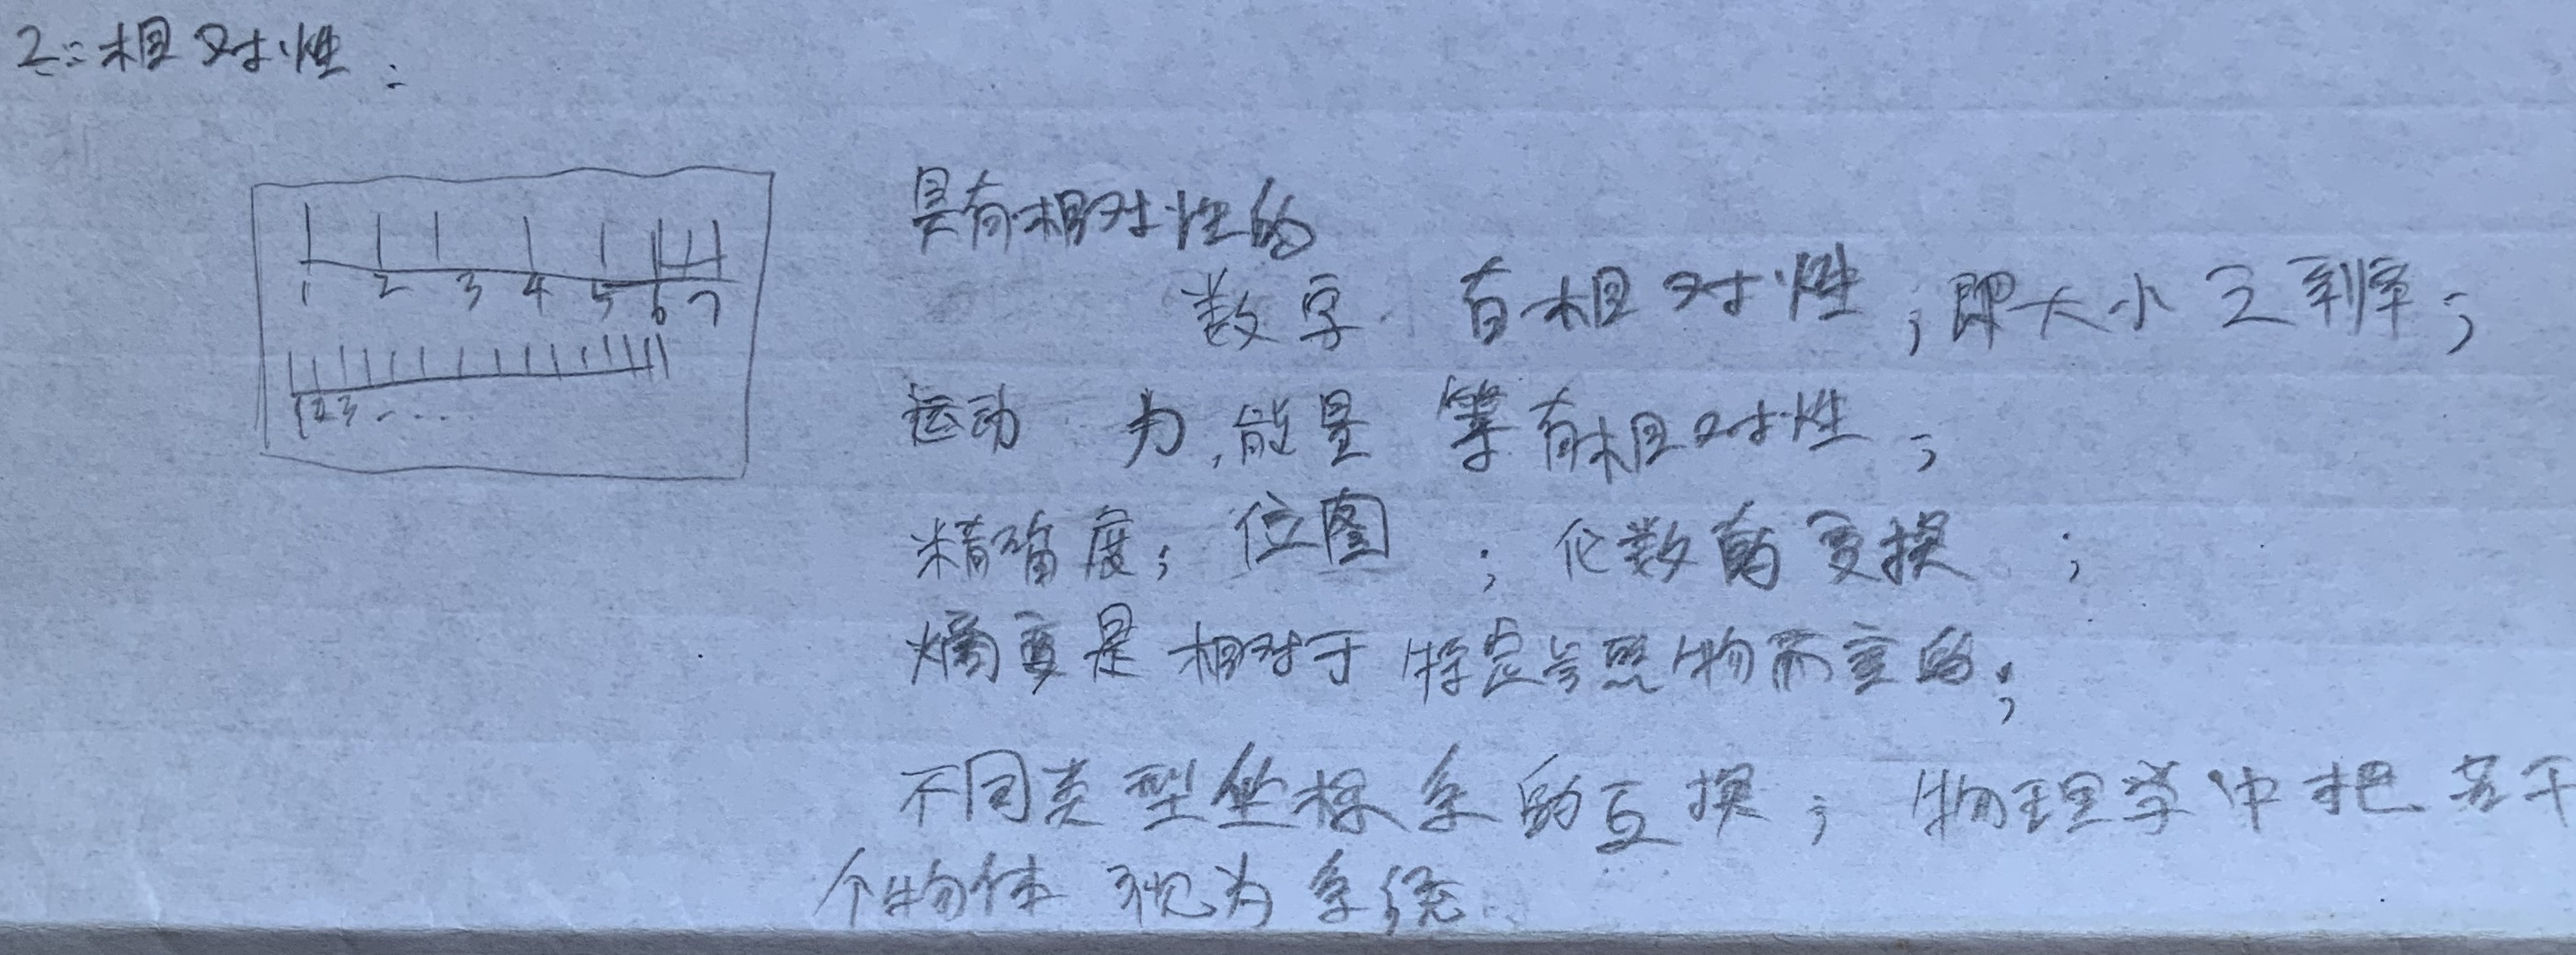 2:相对性:
1 2 3 4 5 6 7
1 2 3 - . . .
具有相对性的
数字 有相对性;即大小之别;
运动 力,能量 等有相对性;
精确度; 位图 ; 数的变换 ;
熵变是相对于特定参照物而变的;
不同类型坐标系的互换; 物理学中把若干
个物体 视为系统